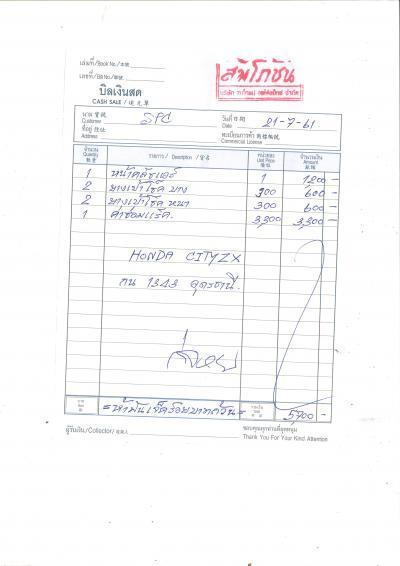 เล่มที่/Book No./本號
เลขที่/Bill No./號碼
สัมโภชัน
บิลเงินสด
CASH SALE / 現兌單
นาม 寶號
Customer SPC
วันที่ 日期
Date 21-7-61
ที่อยู่ 住址
Address
ทะเบียนการค้า
Commercial License
จำนวน
Quantity
數量
รายการ / Description / 貨名
หน่วยละ
Unit Price
จำนวนเงิน
Amount
1 หน้าคลัชแอร์ 1 1200 -
2 ยางเบ้าโช๊ค บาง 300 600 -
2 ยางเบ้าโช๊ค หนา 300 600 -
1 ค่าซ่อมแร๊ค. 3,300 3,300 -
HONDA CITYZX
กน 1343 อุดรธานี.
= ห้าพันเจ็ดร้อยบาทถ้วน =
รวมเงิน
Total
5700 -
ผู้รับเงิน/Collector/收款人
ขอบคุณทุกท่านที่อุดหนุน
Thank You For Your Kind Attention